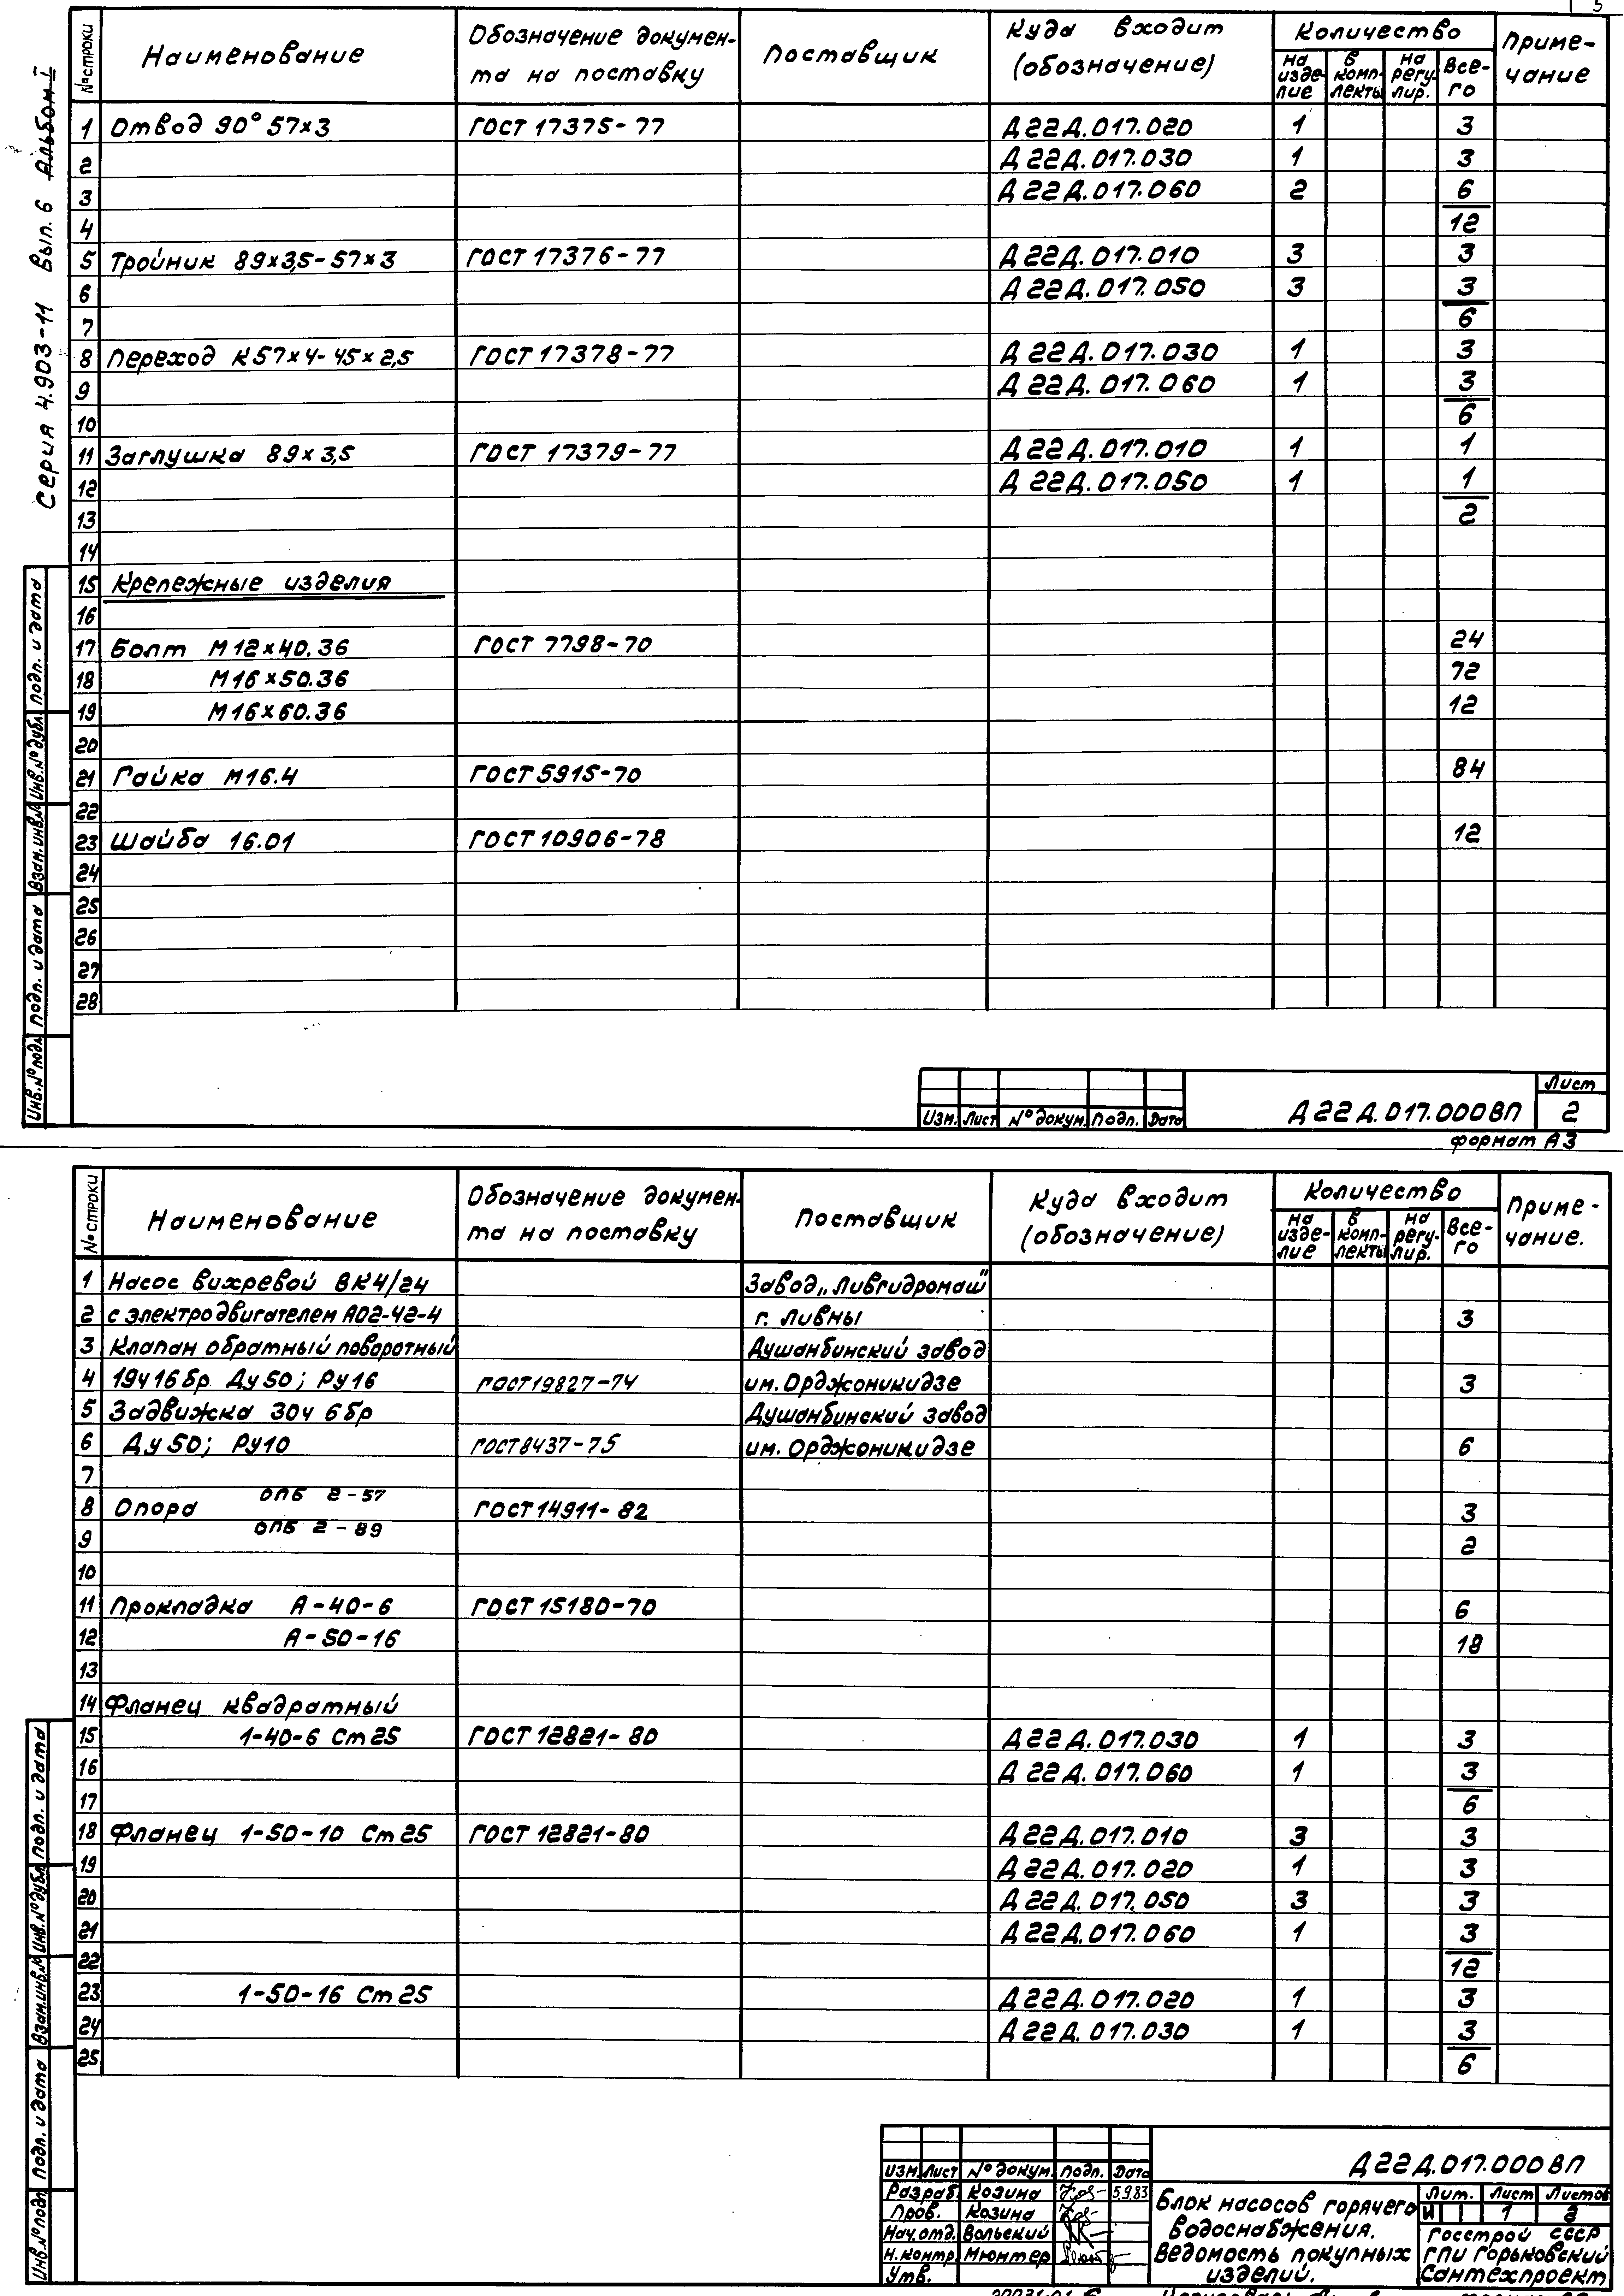 5
Серия 4.903-11 Вып. 6 Альбом I
№ строки | Наименование | Обозначение докумен-та на поставку | Поставщик | Куда входит (обозначение) | Количество | на изде-лие | в комп-лекты | на регу-лир. | Все-го | Приме-чание
1 Отвод 90° 57×3 ГОСТ 17375-77 Д22Д.017.020 1 3
2 Д22Д.017.030 1 3
3 Д22Д.017.060 2 6
4 12
5 Тройник 89×3,5-57×3 ГОСТ 17376-77 Д22Д.017.010 3 3
6 Д22Д.017.050 3 3
7 6
8 Переход К57×4-45×2,5 ГОСТ 17378-77 Д22Д.017.030 1 3
9 Д22Д.017.060 1 3
10 6
11 Заглушка 89×3,5 ГОСТ 17379-77 Д22Д.017.010 1 1
12 Д22Д.017.050 1 1
13 2
14
15 Крепежные изделия
16
17 Болт М12×40.36 ГОСТ 7798-70 24
18 М16×50.36 72
19 М16×60.36 12
20
21 Гайка М16.4 ГОСТ 5915-70 84
22
23 Шайба 16.01 ГОСТ 10906-78 12
24
25
26
27
28
Инв.№ подл. Подп. и дата Взам.инв.№ Инв.№ дубл. Подп. и дата
Изм. Лист № докум. Подп. Дата Д22Д.017.000ВП Лист 2
формат А3
№ строки | Наименование | Обозначение докумен-та на поставку | Поставщик | Куда входит (обозначение) | Количество | на изде-лие | в комп-лекты | на регу-лир. | Все-го | Приме-чание.
1 Насос вихревой ВК4/24 Завод „Ливгидромаш"
2 с электродвигателем АО2-42-4 г. Ливны 3
3 Клапан обратный поворотный Душанбинский завод
4 19ч16бр Ду50; Ру16 ГОСТ19827-74 им. Орджоникидзе 3
5 Задвижка 30ч 6бр Душанбинский завод
6 Ду50; Ру10 ГОСТ8437-75 им. Орджоникидзе 6
7
8 Опора ОПБ 2-57 ГОСТ14911-82 3
9 ОПБ 2-89 2
10
11 Прокладка А-40-6 ГОСТ 15180-70 6
12 А-50-16 18
13
14 Фланец квадратный
15 1-40-6 Ст25 ГОСТ 12821-80 Д22Д.017.030 1 3
16 Д22Д.017.060 1 3
17 6
18 Фланец 1-50-10 Ст25 ГОСТ 12821-80 Д22Д.017.010 3 3
19 Д22Д.017.020 1 3
20 Д22Д.017.050 3 3
21 Д22Д.017.060 1 3
22 12
23 1-50-16 Ст25 Д22Д.017.020 1 3
24 Д22Д.017.030 1 3
25 6
Инв.№ подл. Подп. и дата Взам.инв.№ Инв.№ дубл. Подп. и дата
Д22Д.017.000ВП
Изм. Лист № докум. Подп. Дата
Разраб. Козина 5.9.83
Пров. Козина
Нач.отд. Вольский
Н.контр. Мюнтер
Утв.
Блок насосов горячего
водоснабжения.
Ведомость покупных
изделий.
Лит. Лист Листов
И 1 2
Госстрой СССР
ГПИ Горьковский
Сантехпроект